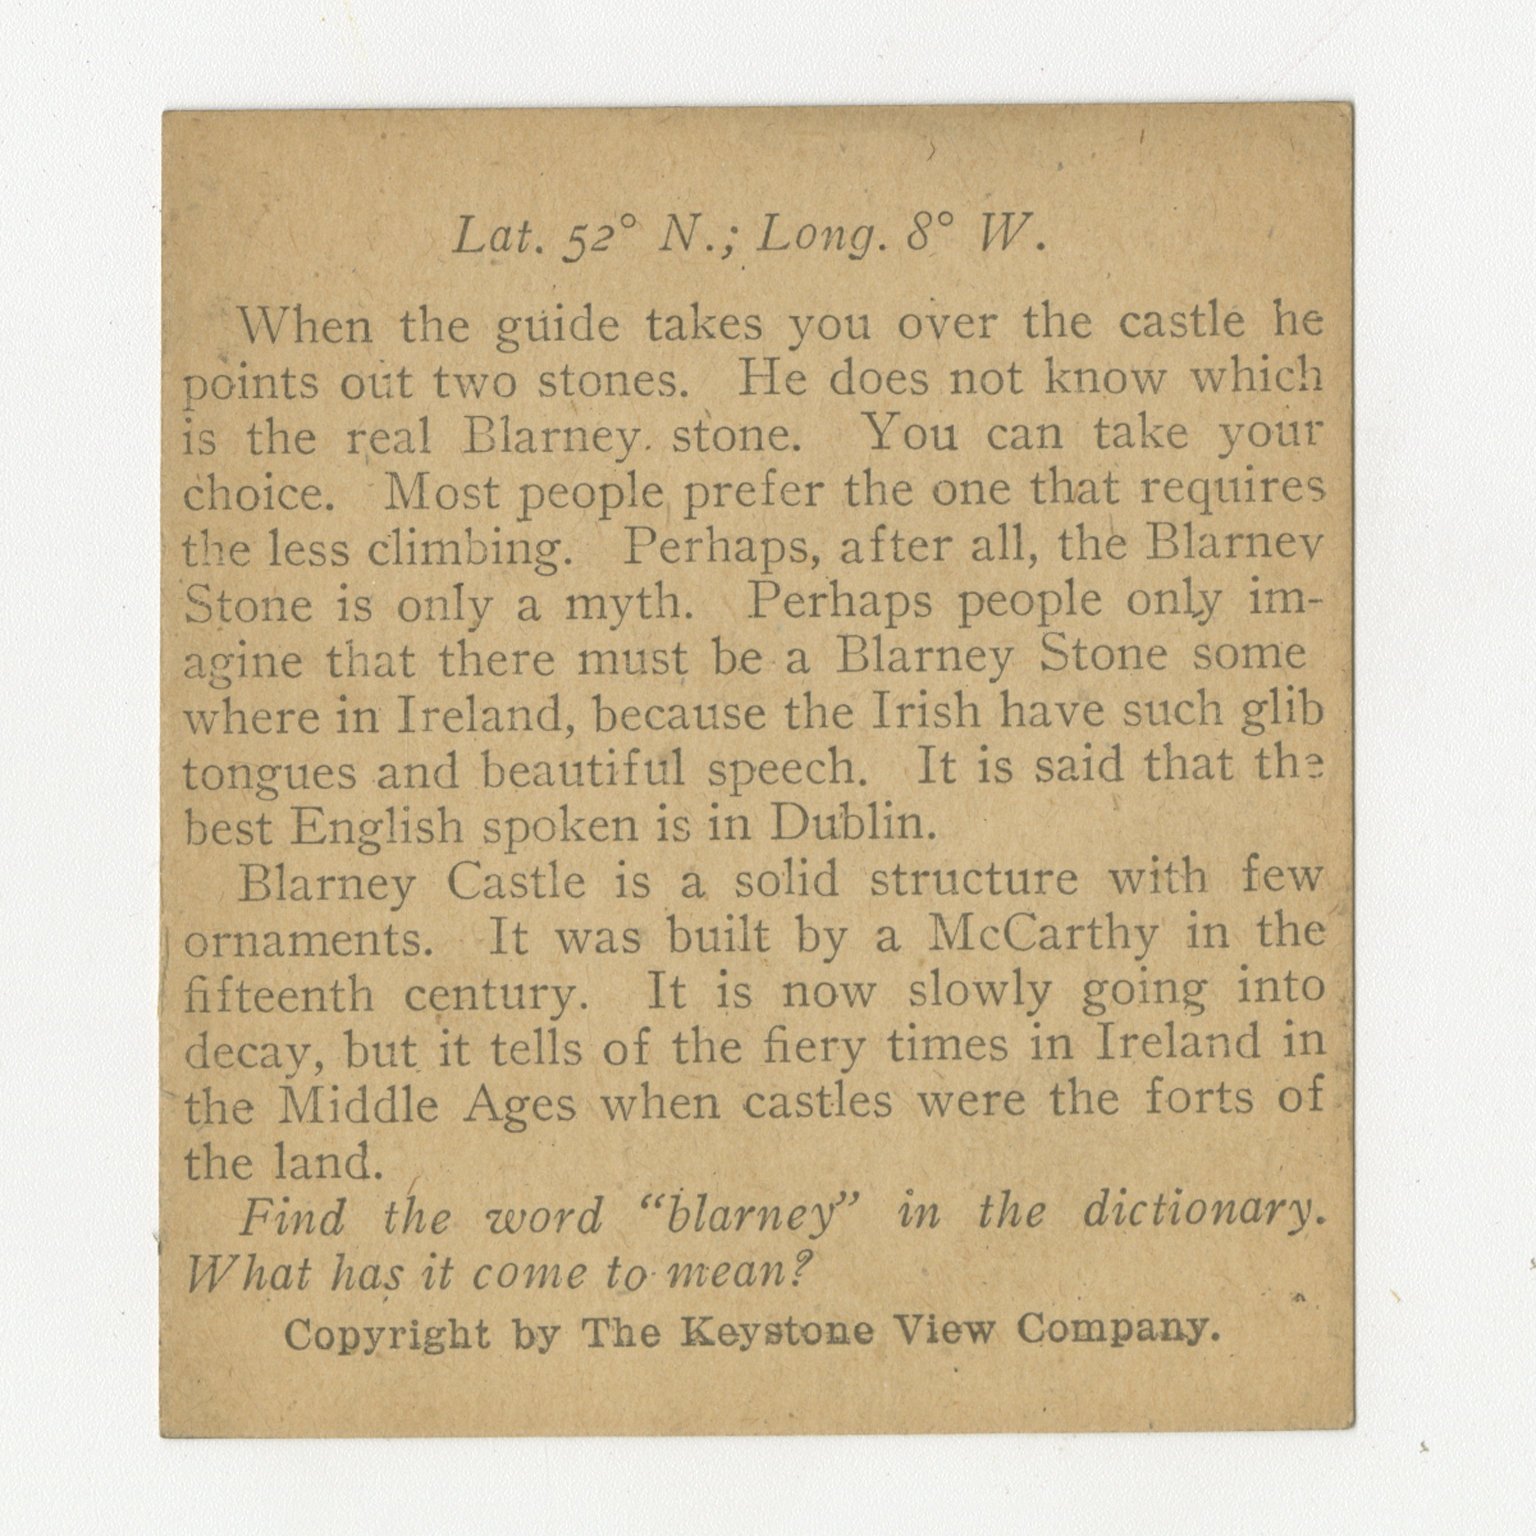 Lat. 52° N.; Long. 8° W.
When the guide takes you over the castle he
points out two stones. He does not know which
is the real Blarney. stone. You can take your
choice. Most people prefer the one that requires
the less climbing. Perhaps, after all, the Blarney
Stone is only a myth. Perhaps people only im-
agine that there must be a Blarney Stone some
where in Ireland, because the Irish have such glib
tongues and beautiful speech. It is said that the
best English spoken is in Dublin.
Blarney Castle is a solid structure with few
ornaments. It was built by a McCarthy in the
fifteenth century. It is now slowly going into
decay, but it tells of the fiery times in Ireland in
the Middle Ages when castles were the forts of
the land.
Find the word “blarney” in the dictionary.
What has it come to mean?
Copyright by The Keystone View Company.